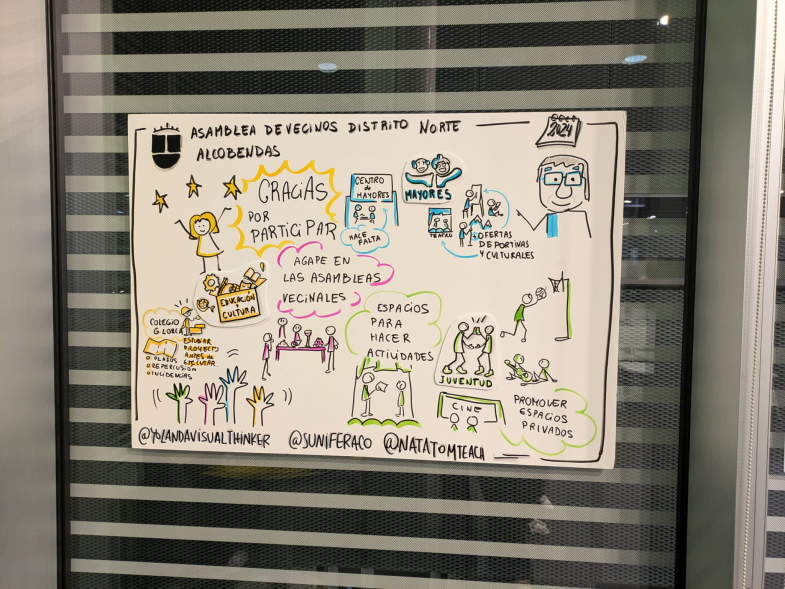 ASAMBLEA DE VECINOS DISTRITO NORTE
ALCOBENDAS
2024
GRACIAS
POR
PARTICIPAR
CENTRO
de
MAYORES
HACE
FALTA
MAYORES
TEATRO
OFERTAS
DEPORTIVAS
Y CULTURALES
AGAPE EN
LAS ASAMBLEAS
VECINALES
EDUCACIÓN
CULTURA
COLEGIO
G. LORCA
ESTUDIAR
PROYECTO
ANTES de
EJECUTAR
PLAZOS
REPERCUSIÓN
INCIDENCIAS
ESPACIOS
PARA
HACER
ACTIVIDADES
JUVENTUD
CINE
PROMOVER
ESPACIOS
PRIVADOS
@YOLANDAVISUALTHINKER @SUNIFERACO @NATATOMTEACH